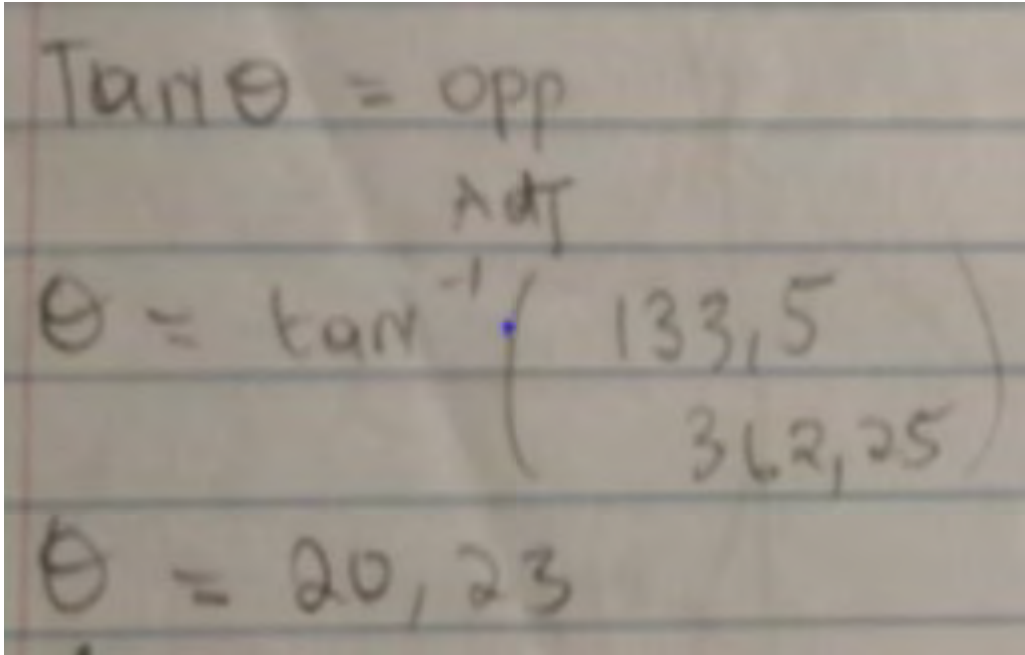 Tan θ = opp
Adj
θ = tan⁻¹ ( 133,5
362,25 )
θ = 20,23